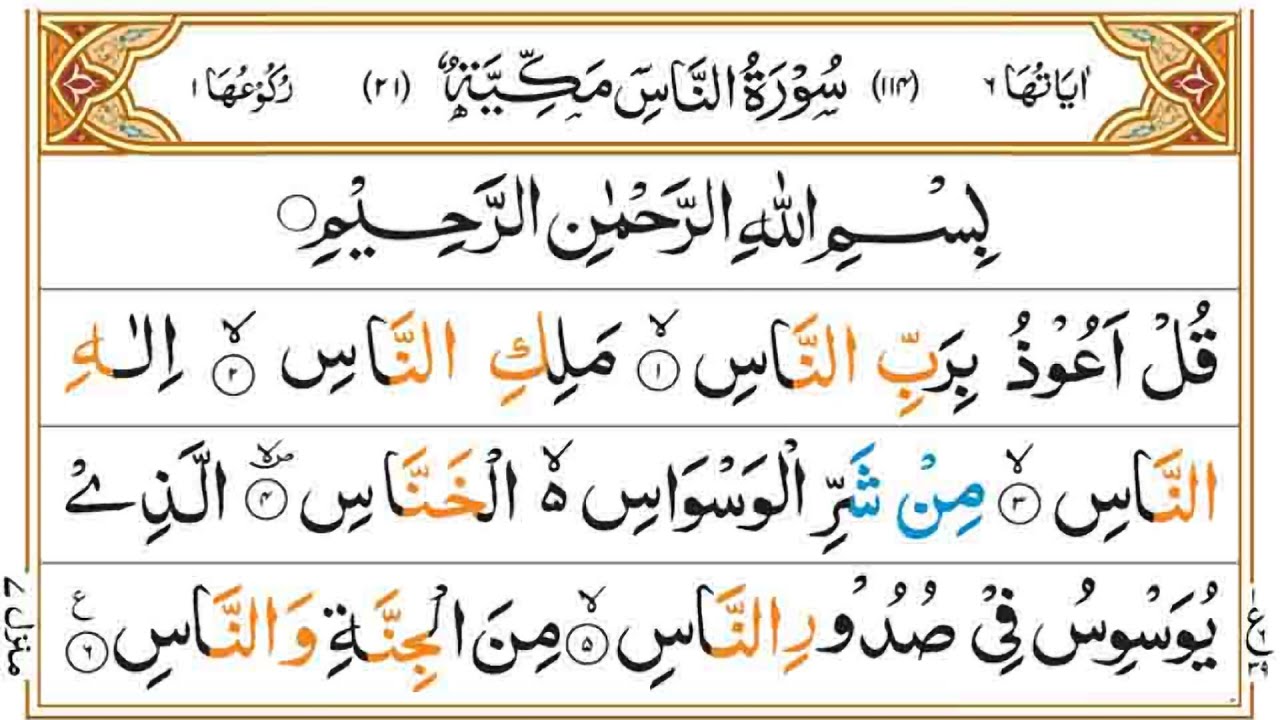 اٰيَاتُهَا ٦ (١١٤) سُوْرَةُ النَّاسِ مَكِّيَّةٌ (٢١) رُكُوْعُهَا ١
بِسْمِ اللّٰهِ الرَّحْمٰنِ الرَّحِيْمِ
قُلْ اَعُوْذُ بِرَبِّ النَّاسِ ۙ﴿١﴾ مَلِكِ النَّاسِ ۙ﴿٢﴾ اِلٰهِ
النَّاسِ ۙ﴿٣﴾ مِنْ شَرِّ الْوَسْوَاسِ ۙ۬ الْخَنَّاسِ ۪ۙ﴿٤﴾ الَّذِيْ
يُوَسْوِسُ فِيْ صُدُوْرِ النَّاسِ ۙ﴿٥﴾ مِنَ الْجِنَّةِ وَالنَّاسِ ع﴿٦﴾
منزل ٧
ع
٣٩